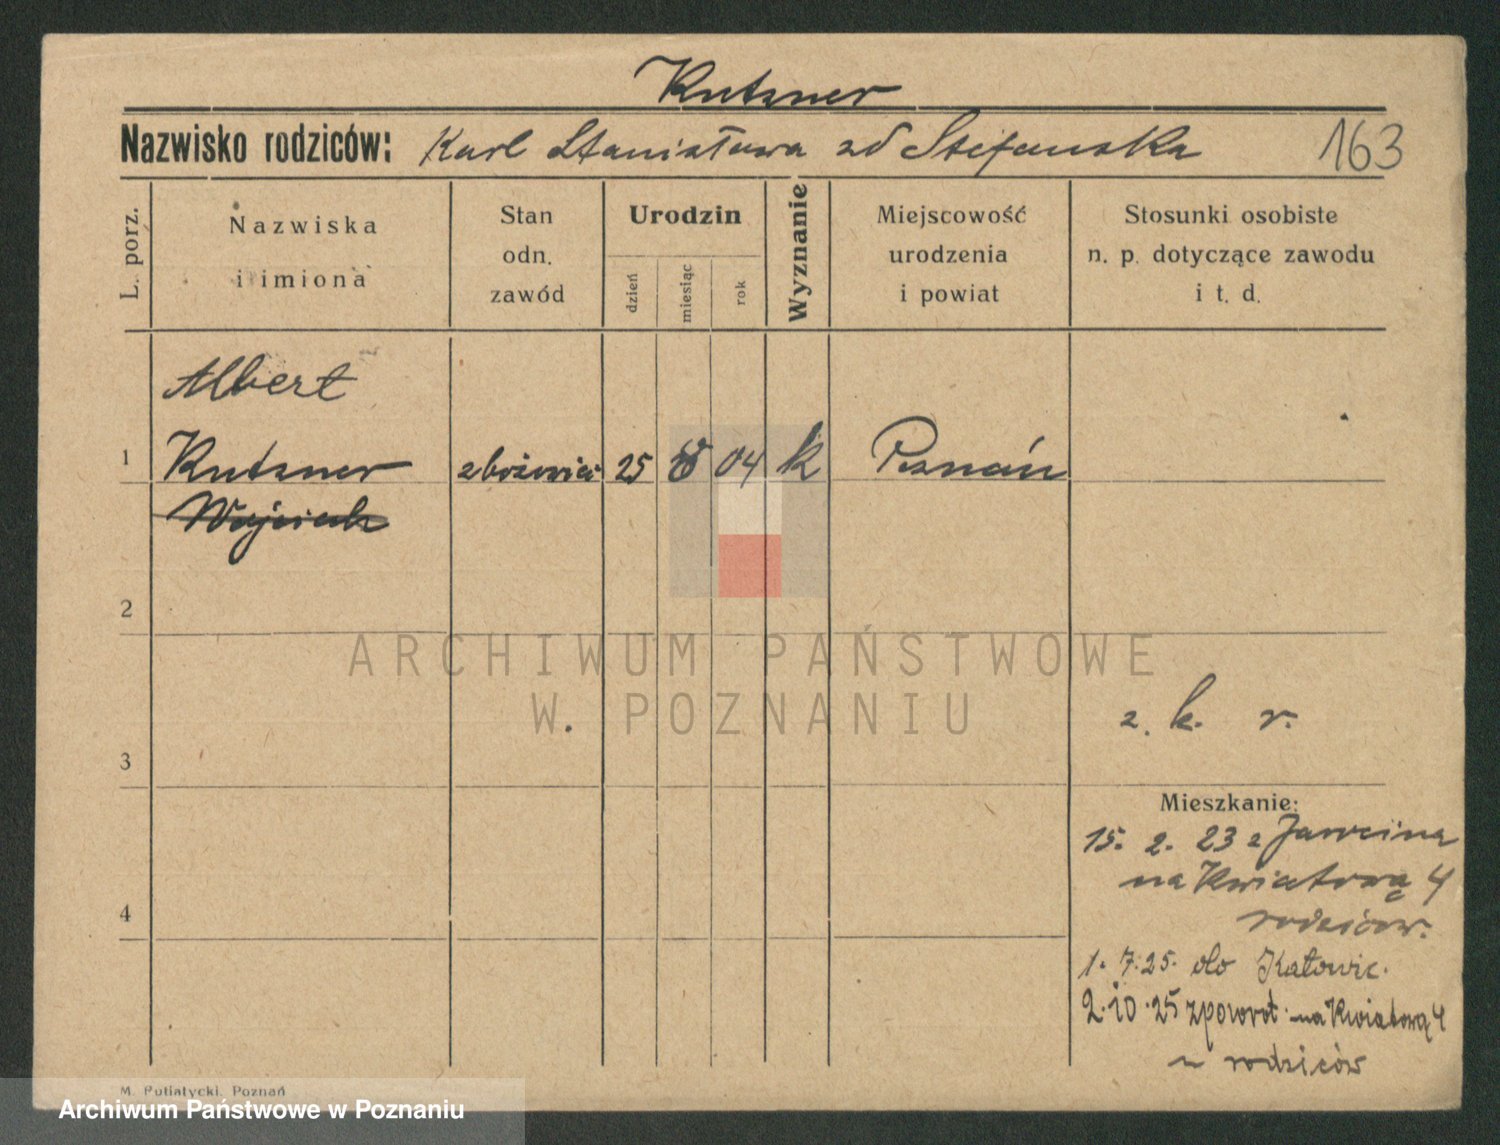 Kutzner
Nazwisko rodziców: Karl Stanisława zd Stefańska 163
L. porz.
Nazwiska
i imiona
Stan
odn.
zawód
Urodzin
dzień
miesiąc
rok
Wyznanie
Miejscowość
urodzenia
i powiat
Stosunki osobiste
n. p. dotyczące zawodu
i t. d.
Albert
1 Kutzner zbożowiec 25 04 k Poznań
Wojciech
2
ARCHIWUM PAŃSTWOWE
W POZNANIU
z. k. r.
3
Mieszkanie:
15. 2. 23 z Jarocina
na Kwiatową 4
rodziców.
4
1. 7. 25. do Katowic.
2. 10. 25 zpowrot. na Kwiatową 4
rodziców
M. Putiatycki, Poznań
Archiwum Państwowe w Poznaniu